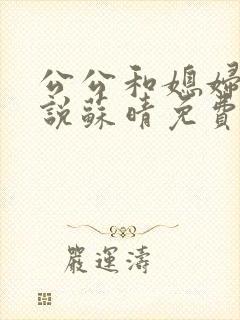 公公和媳婦
說蘇晴免費
嚴運濤